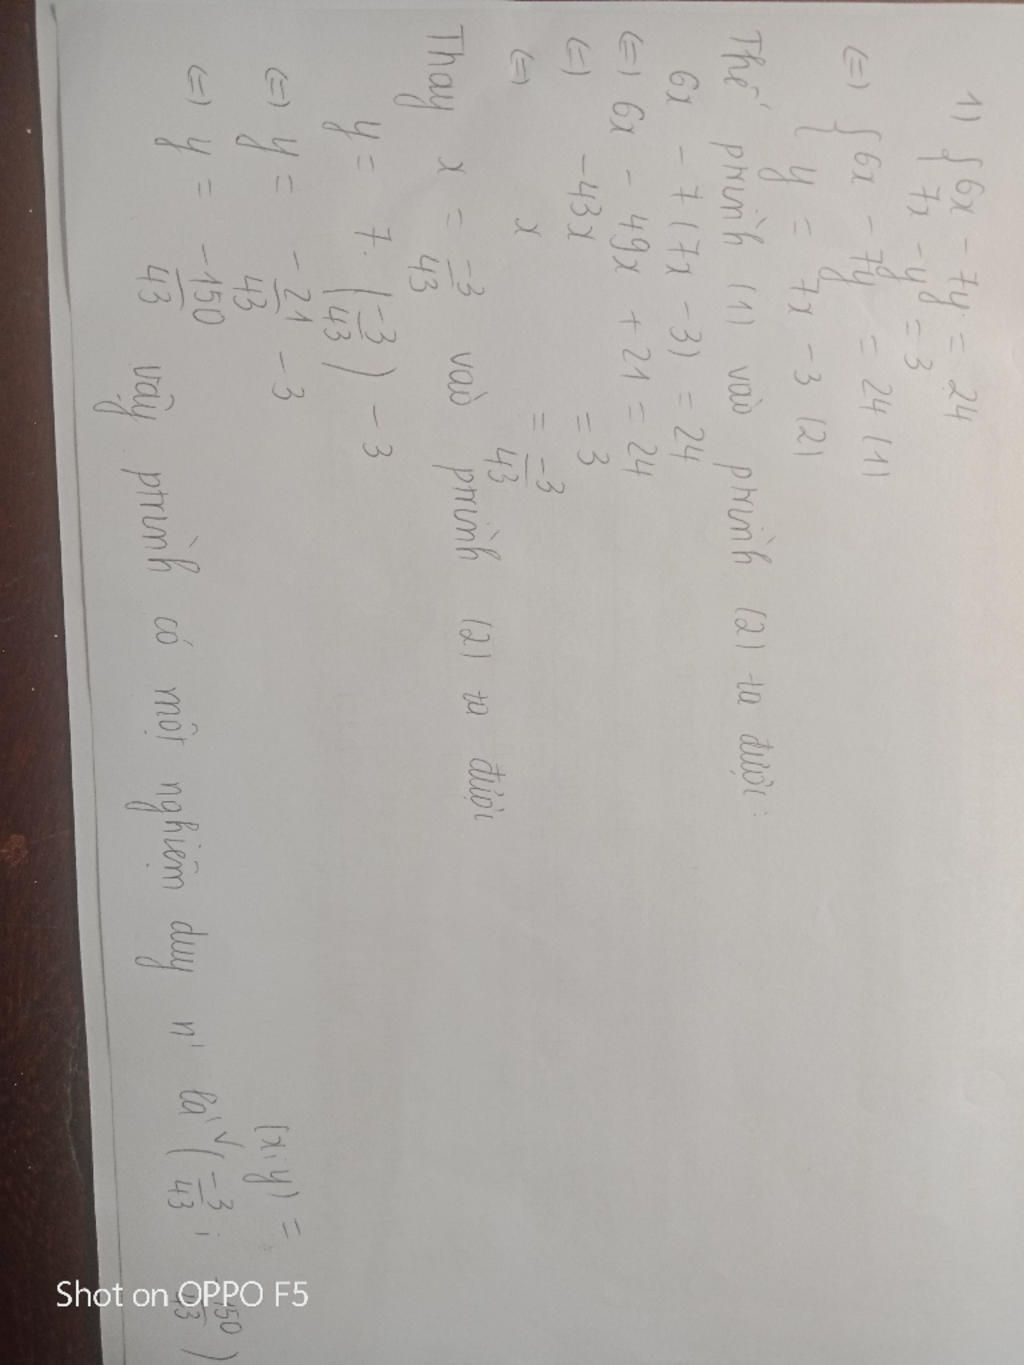 1) { 6x - 7y = 24
7x - y = 3
(=) { 6x - 7y = 24 (1)
y = 7x - 3 (2)
Thế ptrình (1) vào ptrình (2) ta được:
6x - 7 (7x - 3) = 24
(=) 6x - 49x + 21 = 24
(=) -43x = 3
(=) x = -3/43
Thay x = -3/43 vào ptrình (2) ta được
y = 7. (-3/43) - 3
(=) y = -21/43 - 3
(=) y = -150/43 vậy ptrình có một nghiệm duy n' là (x, y) = (-3/43 ; -150/43)
Shot on OPPO F5